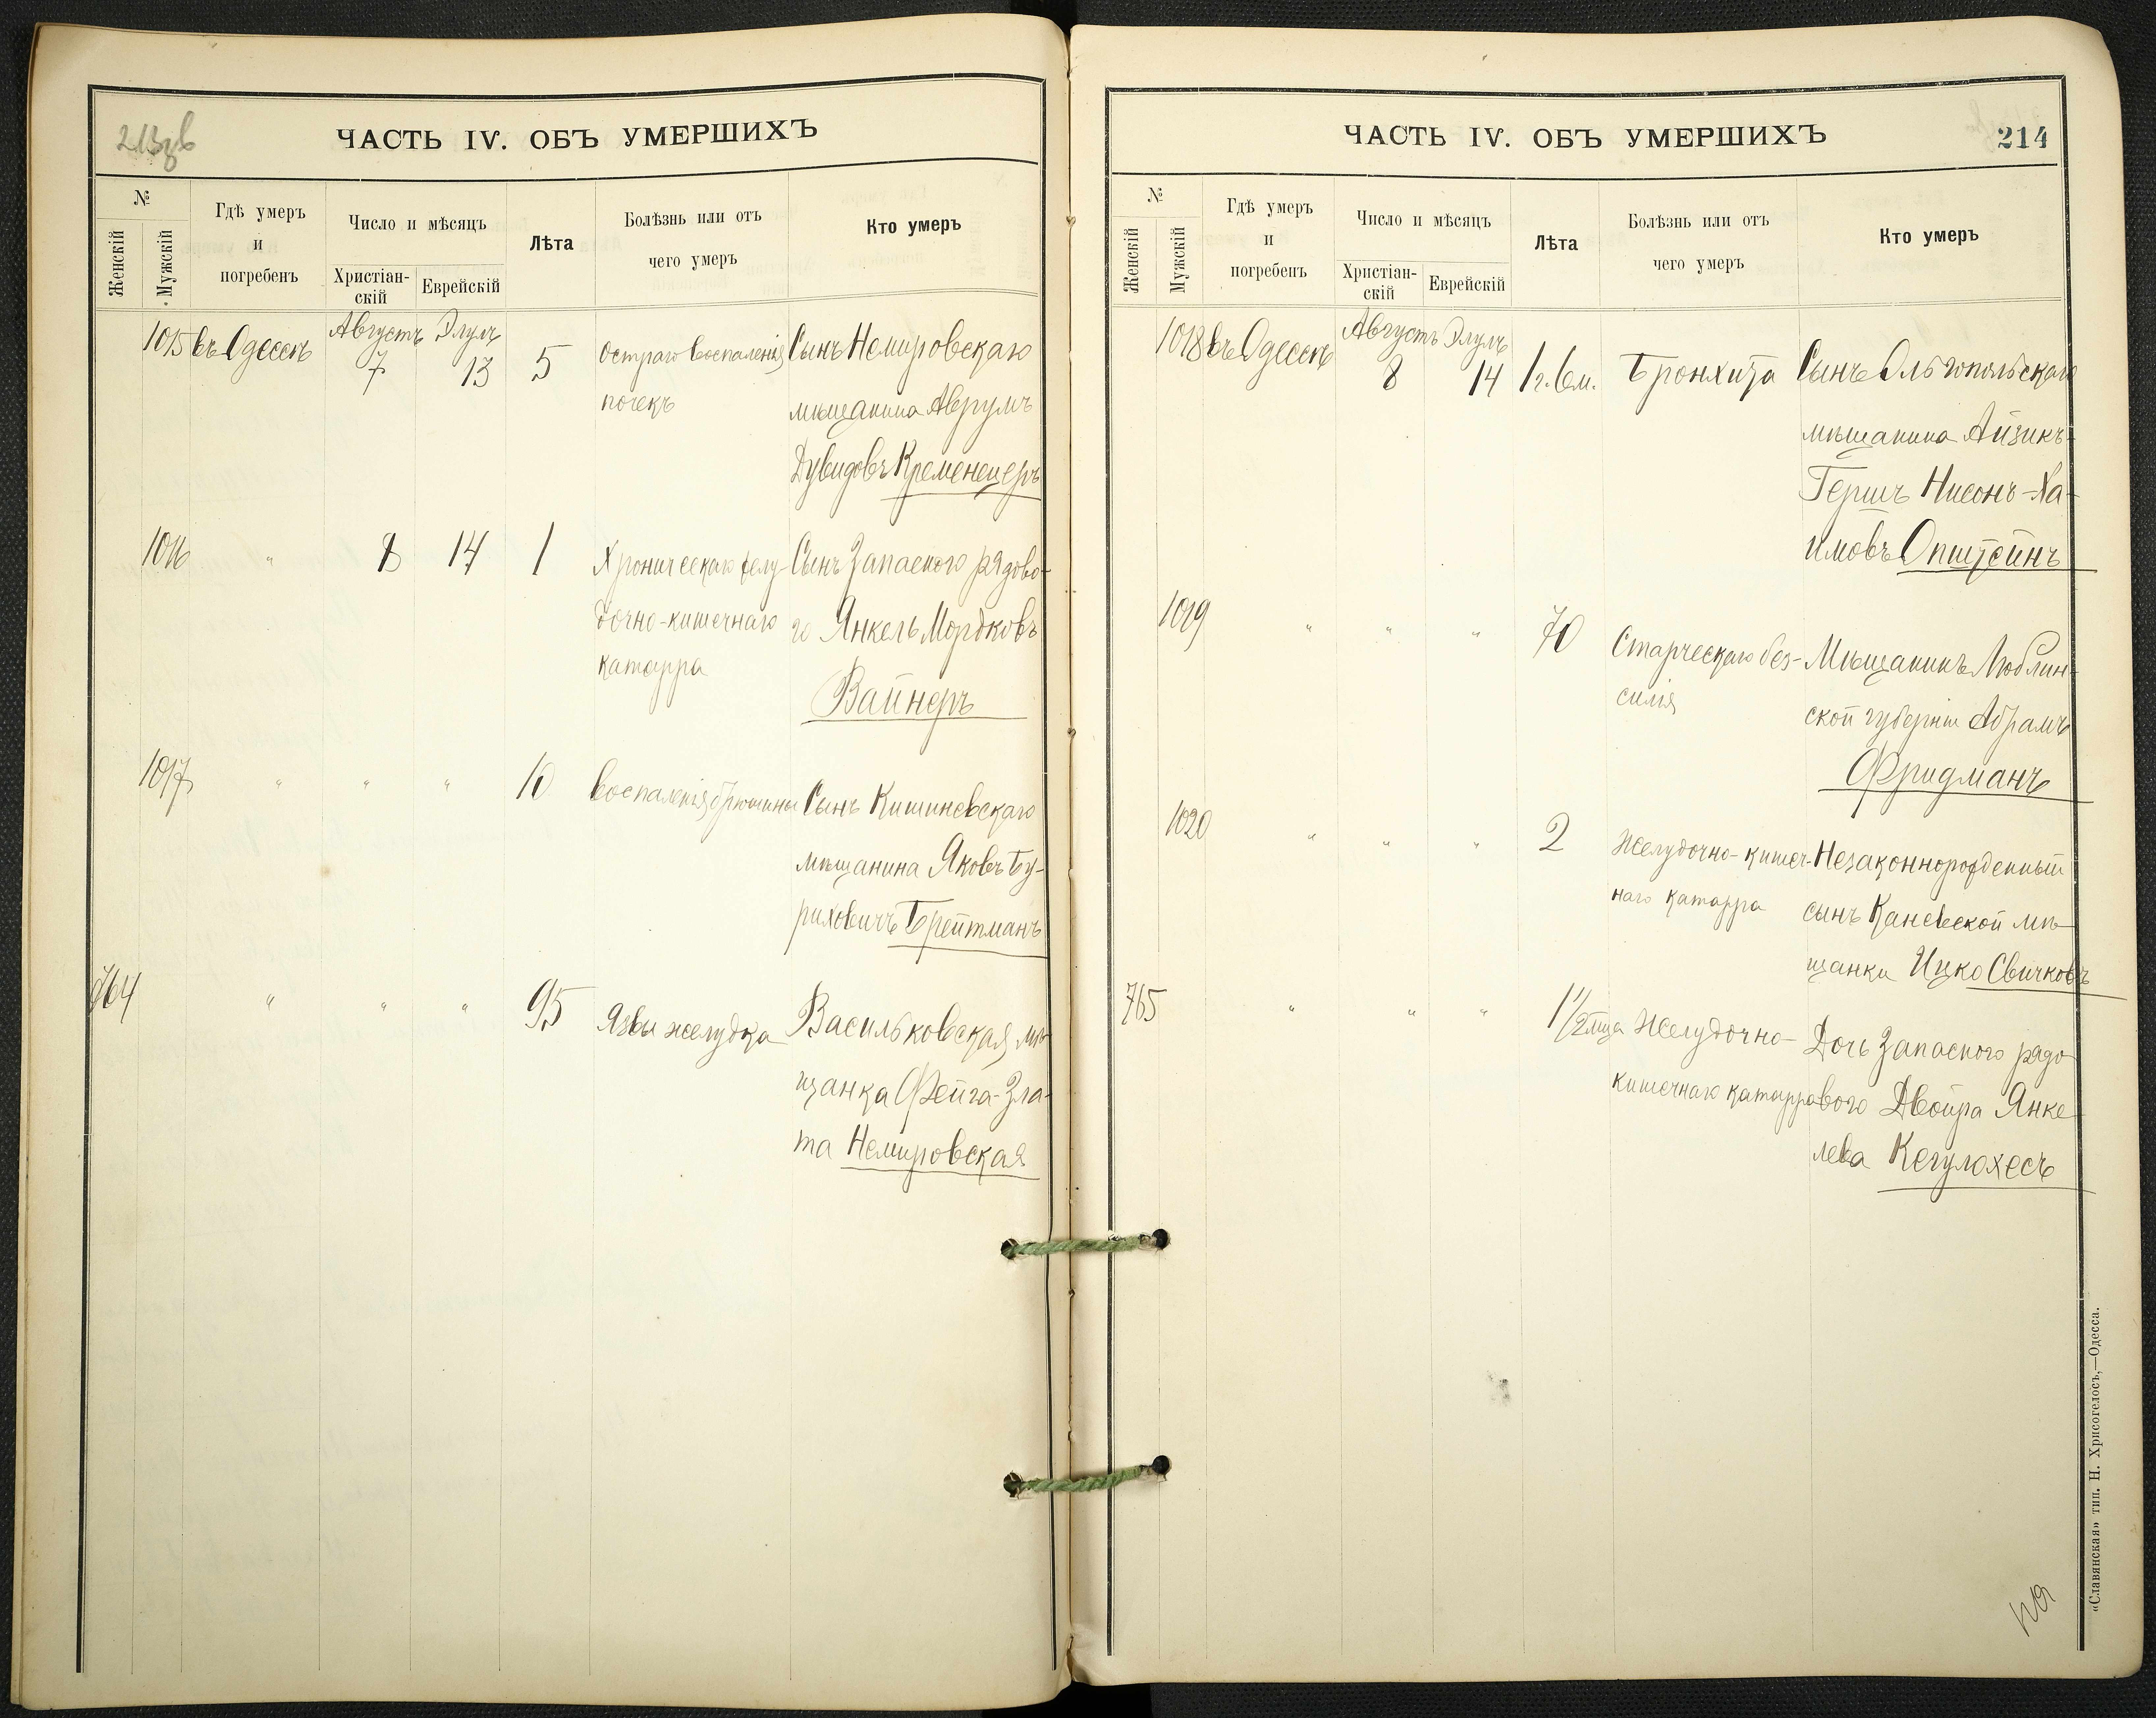 213об
ЧАСТЬ IV. ОБЪ УМЕРШИХЪ
№
Женскій
Мужскій
Гдѣ умеръ
и
погребенъ
Число и мѣсяцъ
Христіан-
скій
Еврейскій
Лѣта
Болѣзнь или отъ
чего умеръ
Кто умеръ
1015 въ Одессѣ Августъ 7 Элулъ 13 5 Остраго воспаленія Сынъ Немировскаго
почекъ мѣщанина Аврумъ
Дувидовъ Кременецеръ
1016 " 8 14 1 Хроническаго желу- Сынъ Запасного рядово-
дочно-кишечнаго го Янкель Мордковъ
катарра Вайнеръ
1017 " " " 10 Воспаленія брюшины Сынъ Кишиневскаго
мѣщанина Яковъ Бу-
риховичъ Брейтманъ
764 " " " 95 Язвы желудка Васильковская мѣ-
щанка Фейга-Зла-
та Немировская
ЧАСТЬ IV. ОБЪ УМЕРШИХЪ
214
№
Женскій
Мужскій
Гдѣ умеръ
и
погребенъ
Число и мѣсяцъ
Христіан-
скій
Еврейскій
Лѣта
Болѣзнь или отъ
чего умеръ
Кто умеръ
1018 въ Одессѣ Августъ 8 Элулъ 14 1 г. 6 м. Бронхита Сынъ Ольгопольскаго
мѣщанина Айзикъ-
Гершъ Нисонъ-Ха-
имовъ Општейнъ
1019 " " " 70 Старческаго без- Мѣщанинъ Люблин-
силія ской губерніи Абрамъ
Фридманъ
1020 " " " 2 Желудочно-кишеч- Незаконнорожденный
наго катарра сынъ Каневской мѣ-
щанки Ицко Свичковъ
765 " " " 1 1/2 мца Желудочно- Дочь Запасного рядо
кишечнаго катарра вого Двойра Янке
лева Кегулохесъ
«Славянская» тип. Н. Хрисогелосъ,—Одесса.